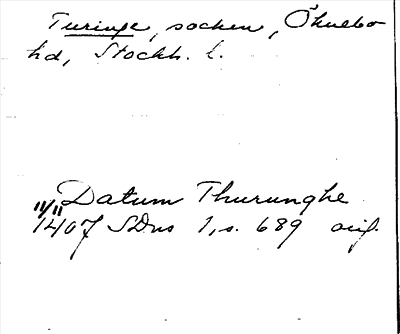 Turinge, socken, Öknebo
hd, Stockh. l.
Datum Thurunghe
11/11 1407 SDns 1, s. 689 orig.